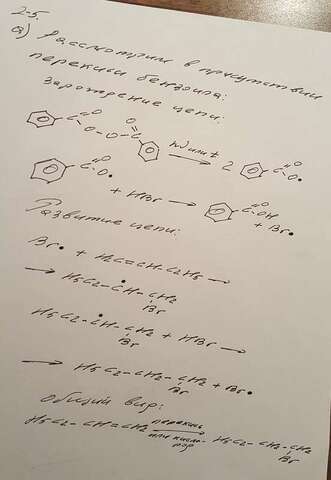 2-5.
а) Рассмотрим в присутствии
перекиси бензоила:
Зарождение цепи:
C=O O-O O=C hν или t 2 C=O O•
C=O O• + HBr → C=O OH + Br•
Развитие цепи:
Br• + H₂C=CH-C₂H₅ →
→ H₅C₂-ĊH-CH₂
Br
H₅C₂-ĊH-CH₂ + HBr →
Br
→ H₅C₂-CH₂-CH₂ + Br•
Br
Общий вид:
H₅C₂-CH=CH₂ перекись или кислород H₅C₂-CH₂-CH₂
Br